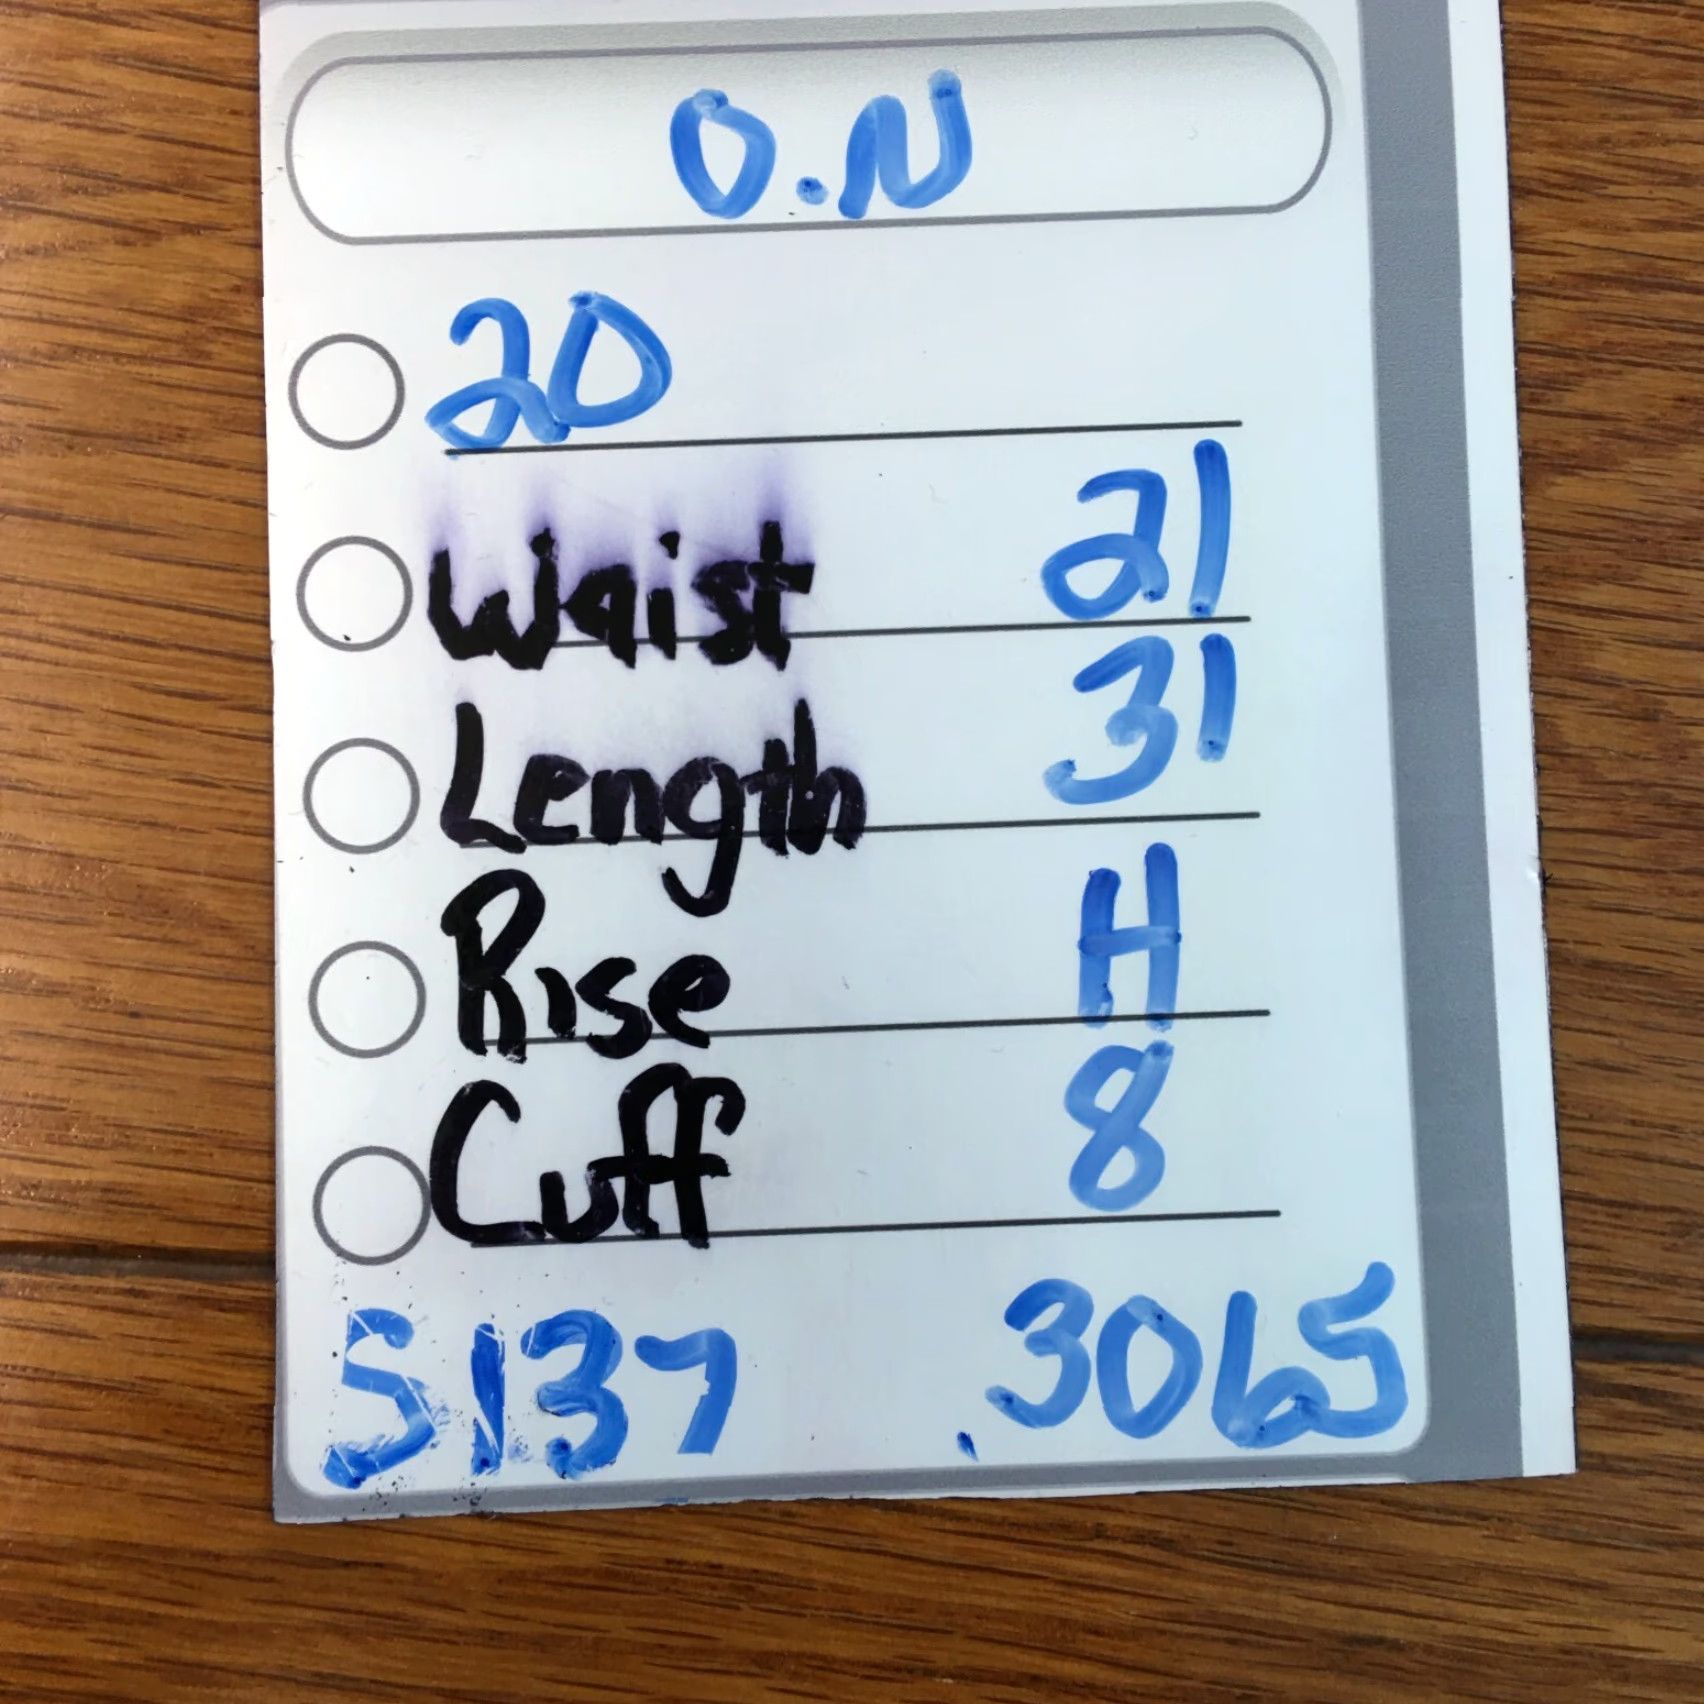 O.N
20
Waist 21
Length 31
Rise H
Cuff 8
5137 3065